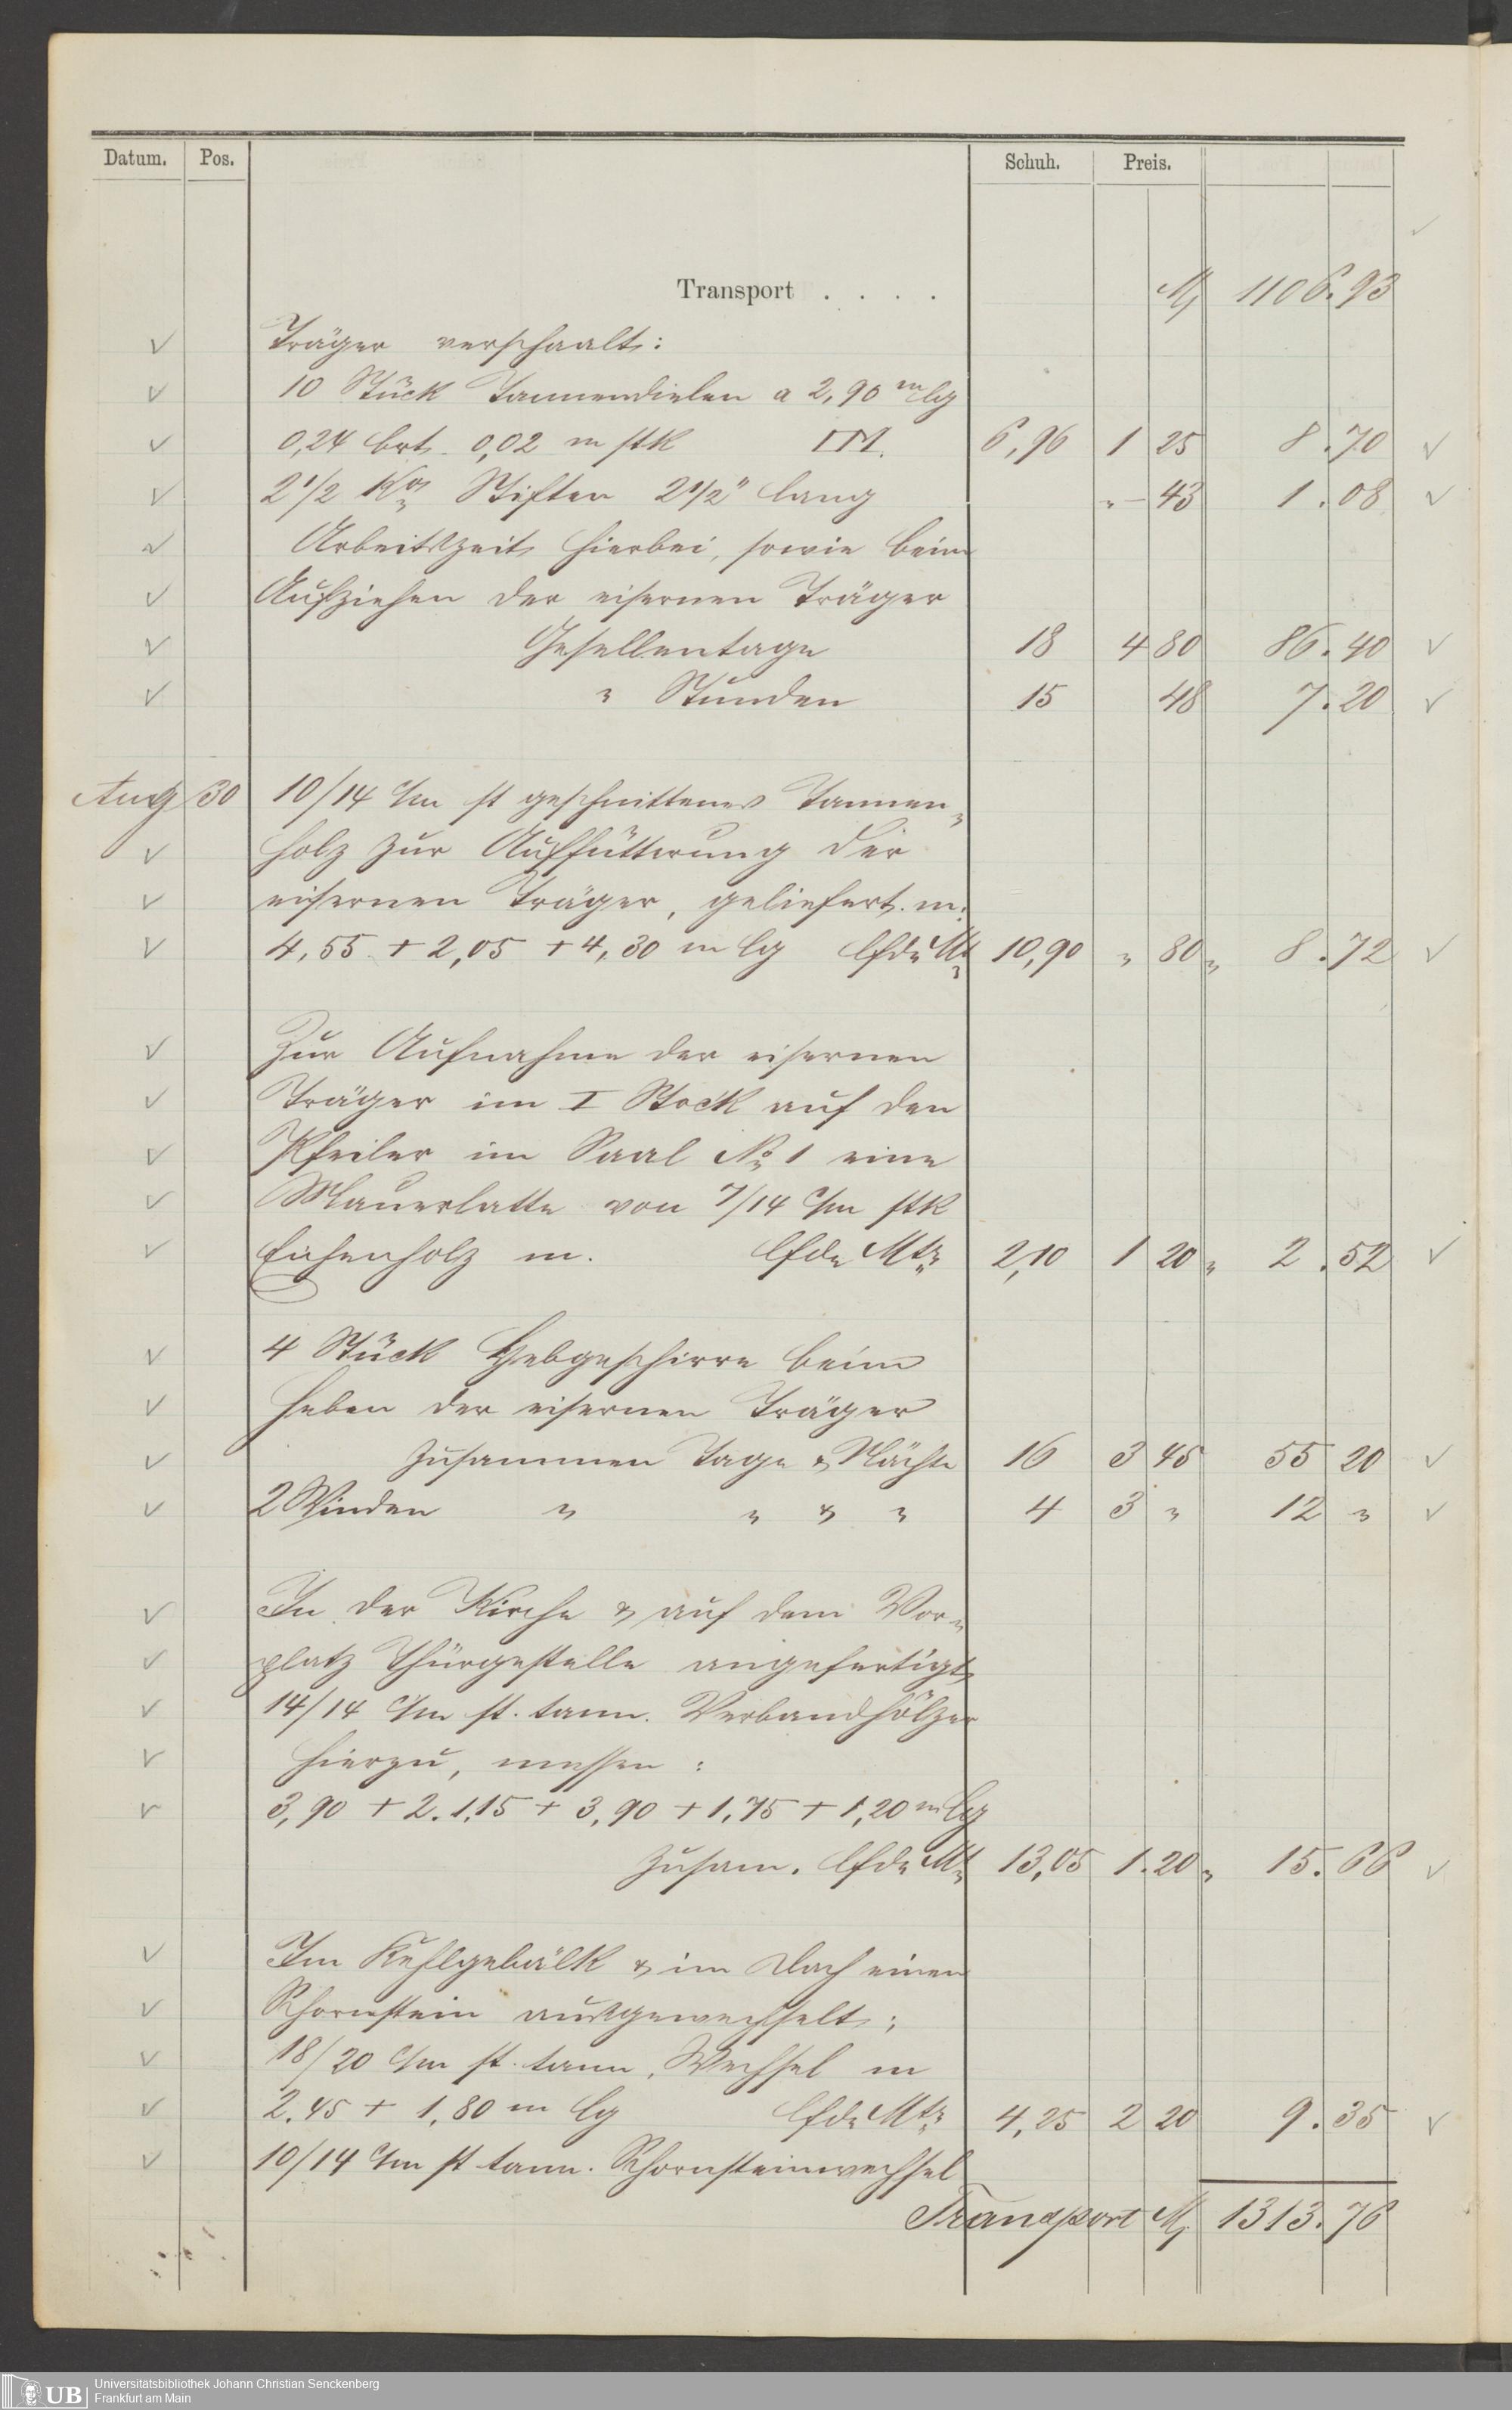 Datum. Pos. Schuh. Preis.
Transport . . . . M 1106.93
Träger verschaalt:
10 Stück Tannendielen a 2,90 m lg
0,24 brt. 0,02 m stk □M. 6,96 1 25 8.70
2 1/2 Ko Stiften 2 1/2" lang " – 43 1.08
Arbeitszeit hierbei, sowie beim
Aufziehen der eisernen Träger
Gesellentage 18 4 80 86.40
" Stunden 15 48 7.20
Aug 30 10/14 c/m st geschnittenes Tannen-
holz zur Auffütterung der
eisernen Träger, geliefert. m:
4,55 + 2,05 + 4,30 m lg lfde Mt 10,90 " 80 " 8.72
Zur Aufnahme der eisernen
Träger im I Stock auf den
Pfeiler im Saal No 1 eine
Mauerlatte von 7/14 c/m stk
Eichenholz m. lfde Mtr 2,10 1 20 " 2.52
4 Stück Hebgeschirre beim
Heben der eisernen Träger
zusammen Tage & Nächte 16 3 45 55 20
2 Winden " " & " 4 3 " 12 "
In der Kirche & auf dem Vor-
platz Thürgestelle angefertigt
14/14 c/m st. tann. Verbandhölzer
hierzu, messen :
3,90 + 2. 1,15 + 3,90 + 1,75 + 1,20 m lg
zusam. lfde Mt 13,05 1.20 " 15.66
Im Kehlgebälk & im Dach einen
Schornstein ausgewechselt;
18/20 c/m st. tann. Wechsel m
2.45 + 1,80 m lg lfde Mtr 4,25 2 20 9.35
10/14 c/m st tann. Schornsteinwechsel
Transport M 1313.76
UB Universitätsbibliothek Johann Christian Senckenberg
Frankfurt am Main